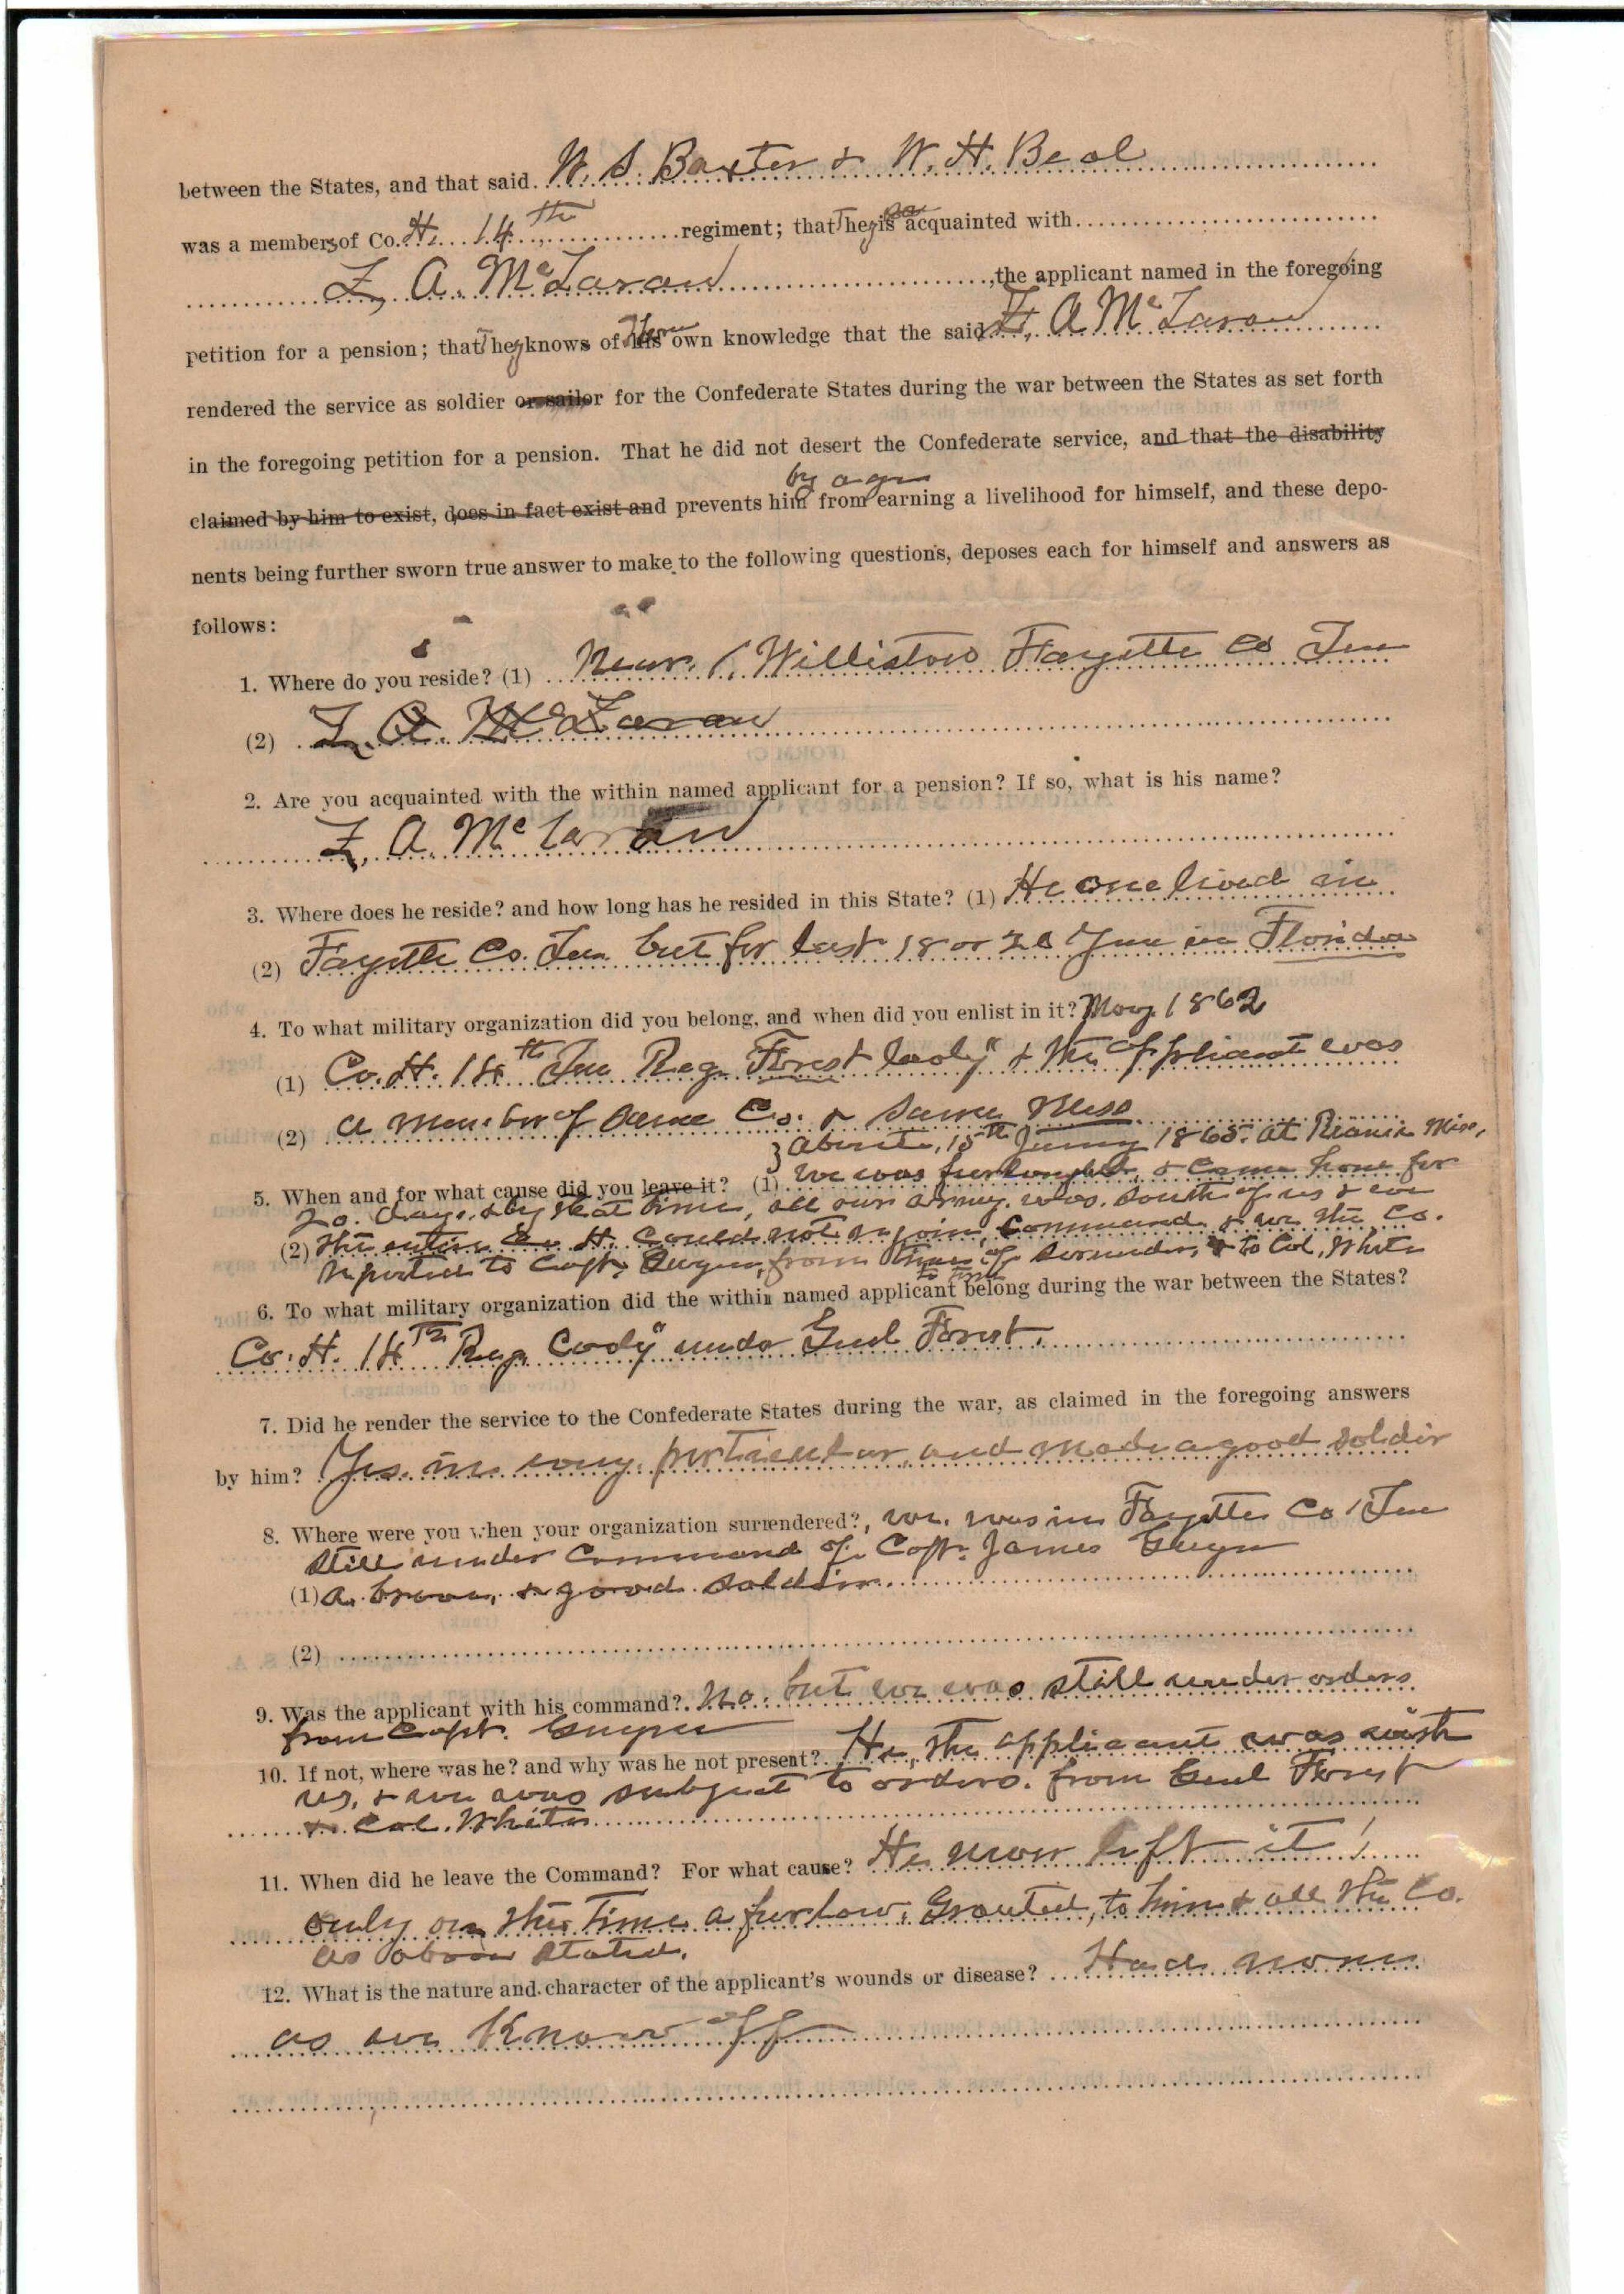 between the States, and that said W. S. Baxter & W. H. Beal
was a members of Co. H. 14th regiment; that They is are acquainted with
Z. A. McLaran, the applicant named in the foregoing
petition for a pension; that They knows of Their own knowledge that the said Z. A McLaran
rendered the service as soldier or sailor for the Confederate States during the war between the States as set forth
in the foregoing petition for a pension. That he did not desert the Confederate service, and that the disability
by age
claimed by him to exist, does in fact exist and prevents him from earning a livelihood for himself, and these depo-
nents being further sworn true answer to make to the following questions, deposes each for himself and answers as
follows:
1. Where do you reside? (1) Near Williston Fayette Co Ten
(2) Z. A. McLaran
2. Are you acquainted with the within named applicant for a pension? If so, what is his name?
Z. A. McLaran
3. Where does he reside? and how long has he resided in this State? (1) He once lived in
(2) Fayette Co. Ten but for last 18 or 20 years in Florida
4. To what military organization did you belong, and when did you enlist in it? May 1862
(1) Co. H. 14th Ten Reg. Forest Cavly & the applicant was
(2) a member of same Co. &
about 15th 1865 at Miss,
5. When and for what cause did you leave it? (1) We was furloughed & came home for
20 days, & by that time, all our army was south of us & we
(2) the entire Co H. could not rejoin command & we the Co.
reported to Capt. Gwyn, from time to time of surrender, & to Col. White
6. To what military organization did the within named applicant belong during the war between the States?
Co. H. 14th Reg. Cavly under Genl Forest.
7. Did he render the service to the Confederate States during the war, as claimed in the foregoing answers
by him? Yes in every particular, and made a good soldier
8. Where were you when your organization surrendered?, we was in Fayette Co Ten
still under command of Capt. James Gwyn
(1) a brave & good soldier
(2)
9. Was the applicant with his command? No. but we was still under orders
from Capt. Gwyn
10. If not, where was he? and why was he not present? He, the applicant was with
us, & we was subject to orders from Genl Forest
& Col. White
11. When did he leave the Command? For what cause? He never left it!
only on the time a furlow, Granted, to him & all the Co.
as above stated.
12. What is the nature and character of the applicant's wounds or disease? Had none
as we know off